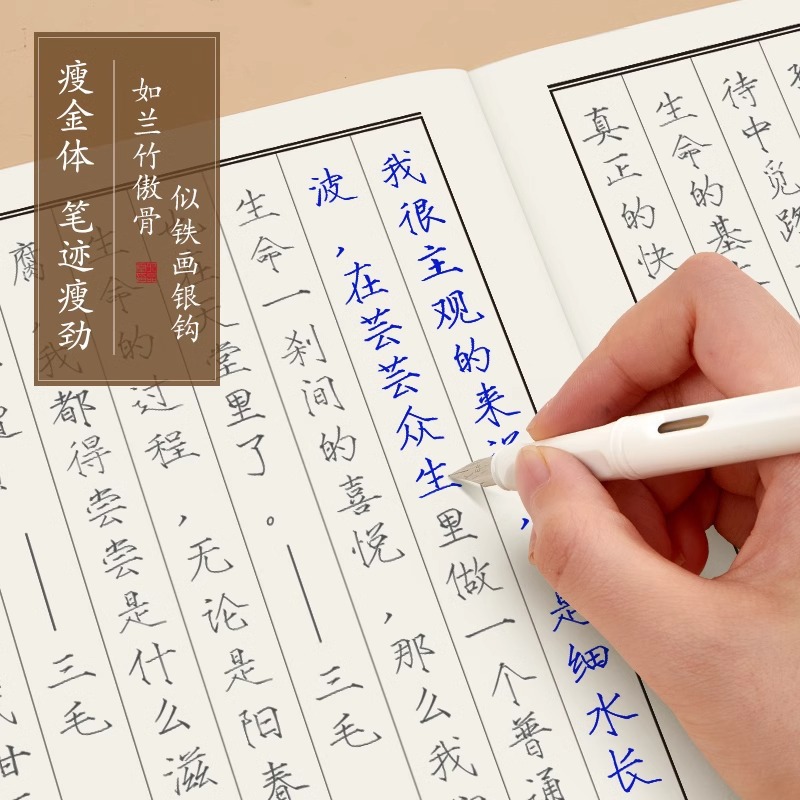 瘦金体 笔迹瘦劲
如兰竹傲骨
似铁画银钩
待中觅
生命的基
真正的快
我很主观的来
，是细水长
波，在芸芸众生里做一个普通
生命一刹间的喜悦，那么我
在天堂里了。——三毛
生命的过程，无论是阳春
腐，我都得尝尝是什么滋
——三毛